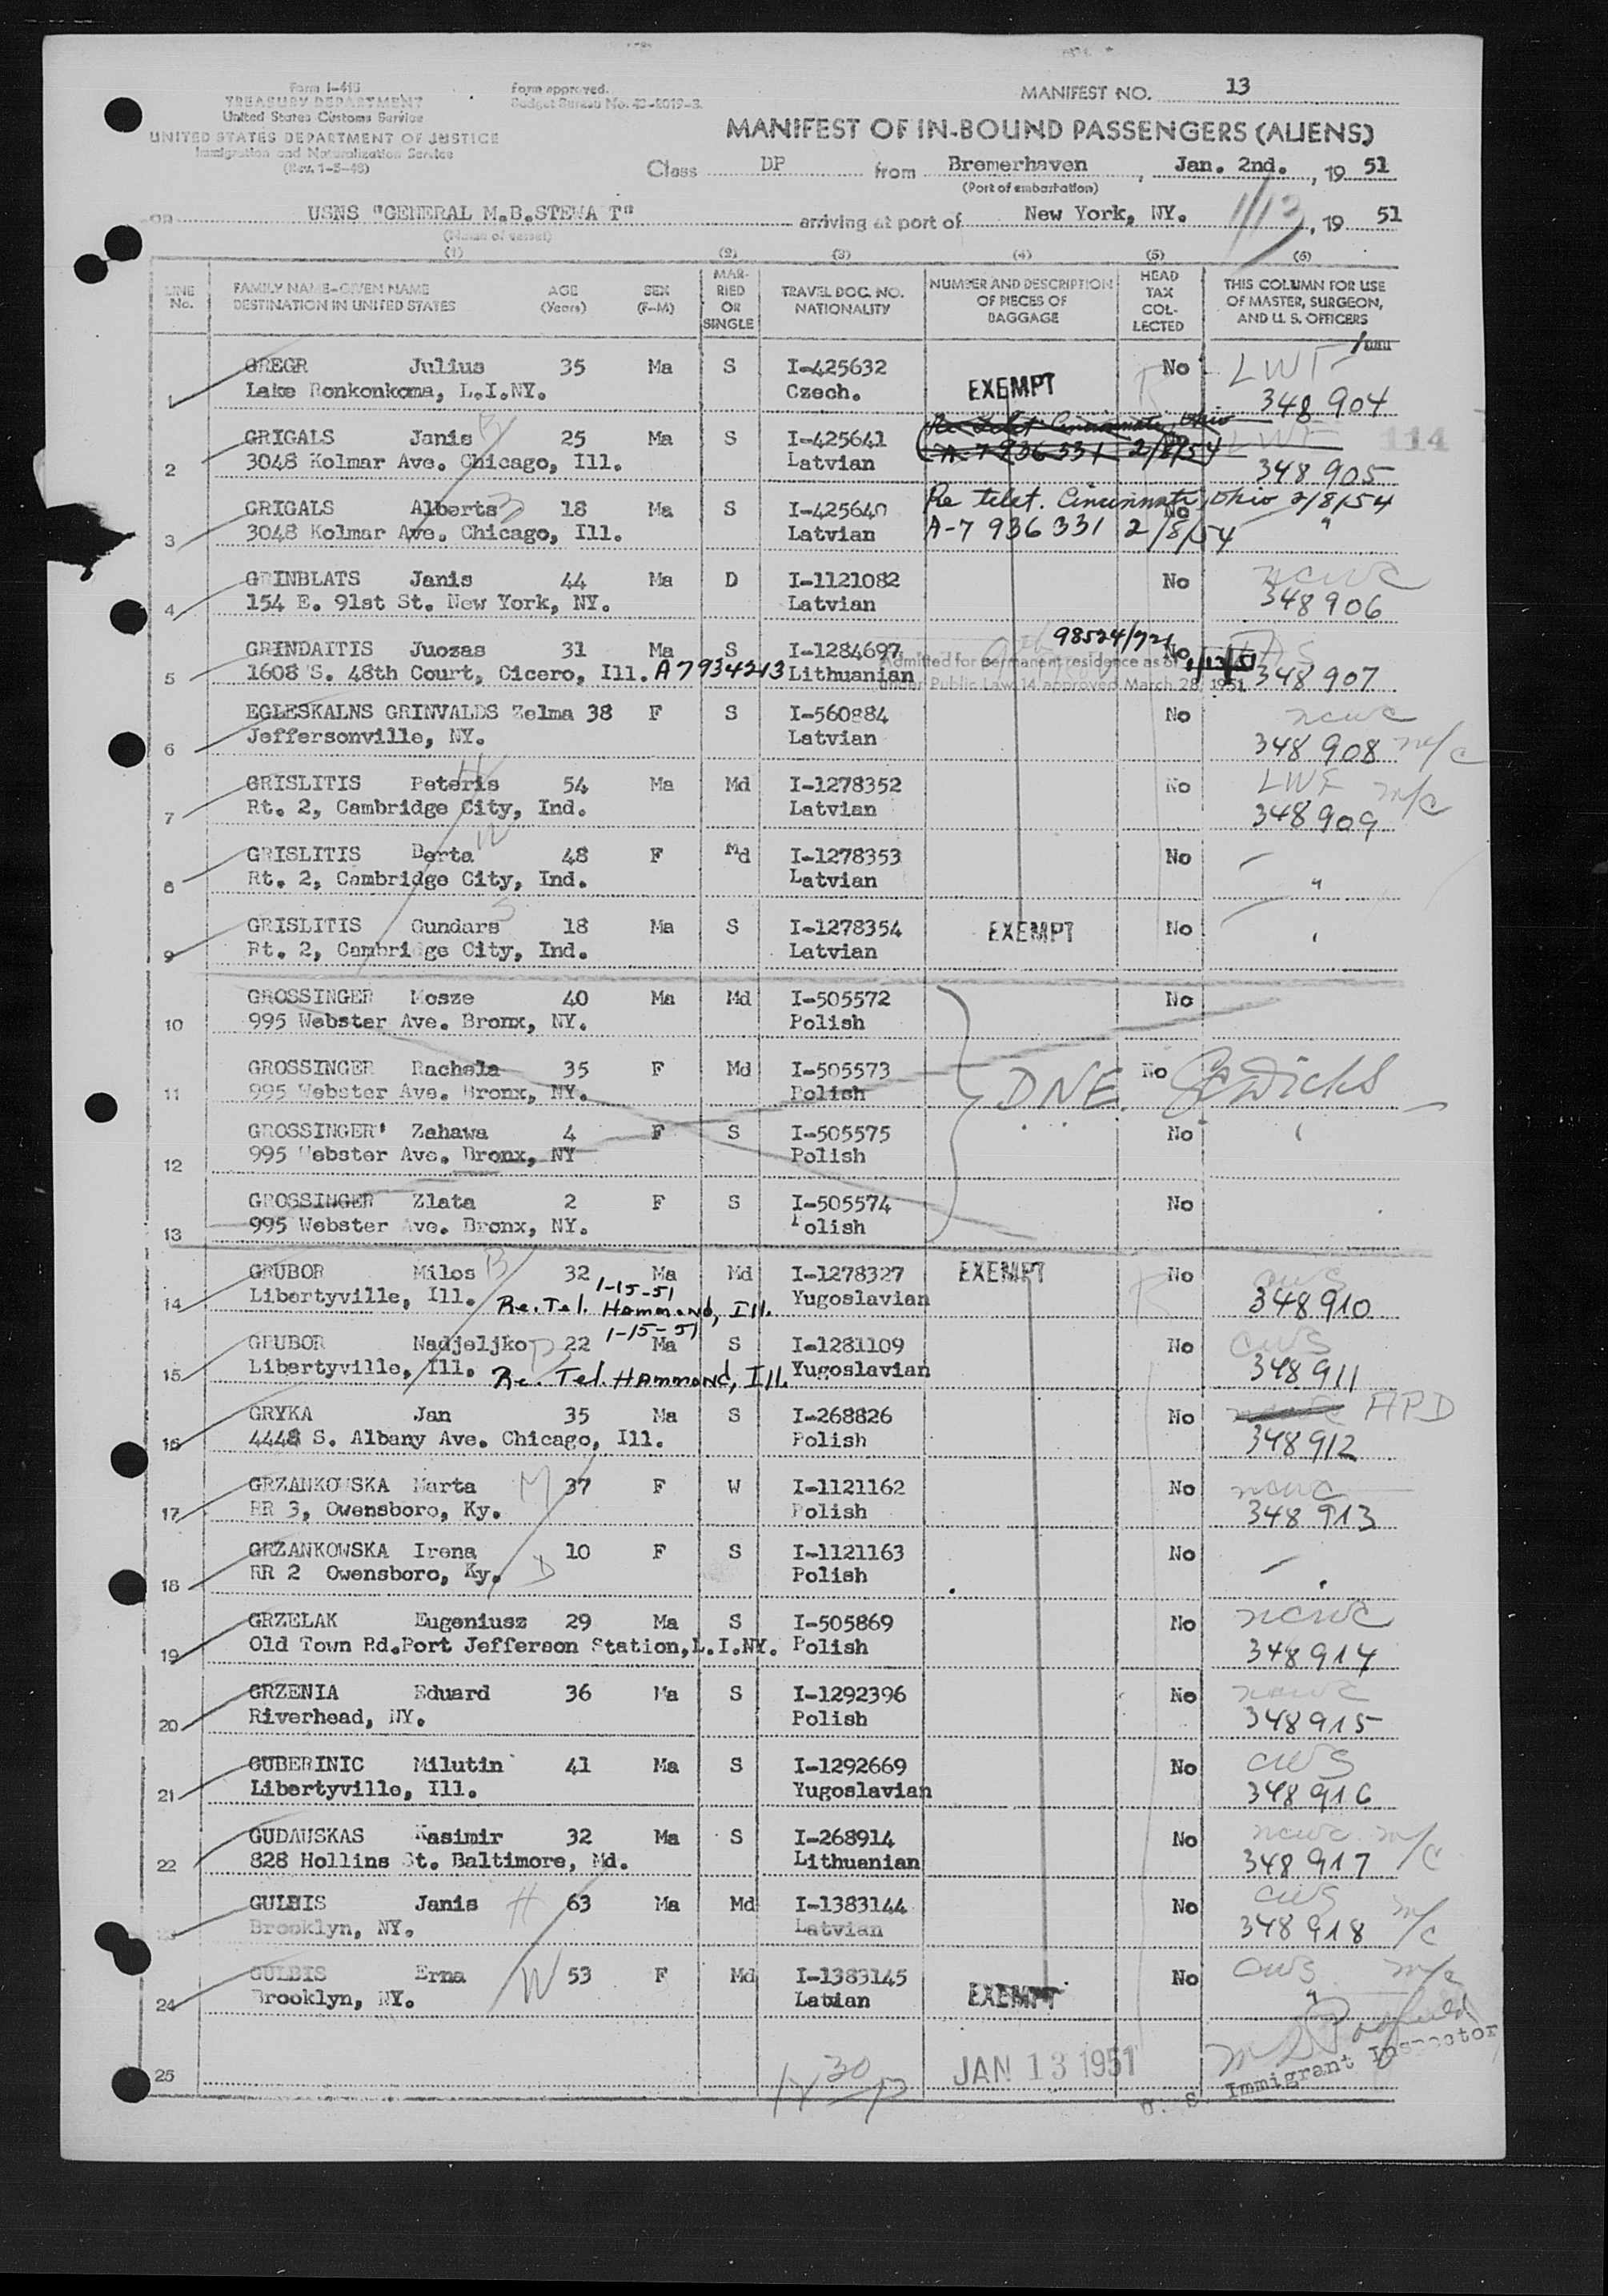 Form I-415
TREASURY DEPARTMENT
United States Customs Service
UNITED STATES DEPARTMENT OF JUSTICE
Immigration and Naturalization Service
(Rev. 1-5-48)
Form approved.
Budget Bureau No. 43-R019-3.
MANIFEST NO. 13
MANIFEST OF IN-BOUND PASSENGERS (ALIENS)
Class DP from Bremerhaven, Jan. 2nd., 19 51
(Port of embarkation)
on USNS "GENERAL M.B.STEWA T" arriving at port of New York, NY. 1/13, 19 51
(Name of vessel)
(1) (2) (3) (4) (5) (6)
LINE No. FAMILY NAME-GIVEN NAME DESTINATION IN UNITED STATES AGE (Years) SEX (F-M) MARRIED OR SINGLE TRAVEL DOC. NO. NATIONALITY NUMBER AND DESCRIPTION OF PIECES OF BAGGAGE HEAD TAX COLLECTED THIS COLUMN FOR USE OF MASTER, SURGEON, AND U. S. OFFICERS
GREGR Julius 35 Ma S I-425632 EXEMPT No LWF
1 Lake Ronkonkoma, L.I.NY. Czech. 348 904
GRIGALS Janis 25 Ma S I-425641 Re telet. Cincinnati, Ohio LWF 114
2 3048 Kolmar Ave. Chicago, Ill. Latvian A-7 936 331 2/8/54 348 905
GRIGALS Alberts 18 Ma S I-425640 Re telet. Cincinnati, Ohio 2/8/54 No
3 3048 Kolmar Ave. Chicago, Ill. Latvian A-7 936 331 2/8/54 "
GRINBLATS Janis 44 Ma D I-1121082 No ncwc
4 154 E. 91st St. New York, NY. Latvian 348 906
GRINDAITIS Juozas 31 Ma S I-1284697 98524/721 No
5 1608 S. 48th Court, Cicero, Ill. A7934213 Lithuanian Admitted for permanent residence as of 1/13/51 under Public Law 14 approved March 28, 1951 348 907
EGLESKALNS GRINVALDS Zelma 38 F S I-560884 No ncwc
6 Jeffersonville, NY. Latvian 348 908 m/c
GRISLITIS Peteris H 54 Ma Md I-1278352 No LWF m/c
7 Rt. 2, Cambridge City, Ind. Latvian 348 909
GRISLITIS Berta W 48 F Md I-1278353 No
8 Rt. 2, Cambridge City, Ind. Latvian "
GRISLITIS Gundars S 18 Ma S I-1278354 EXEMPT No
9 Rt. 2, Cambridge City, Ind. Latvian
GROSSINGER Mosze 40 Ma Md I-505572 No
10 995 Webster Ave. Bronx, NY. Polish
GROSSINGER Rachela 35 F Md I-505573 DNE No
11 995 Webster Ave. Bronx, NY. Polish
GROSSINGER' Zahawa 4 F S I-505575 No
12 995 Webster Ave. Bronx, NY Polish
GROSSINGER Zlata 2 F S I-505574 No
13 995 Webster Ave. Bronx, NY. Polish
GRUBOR Milos B 32 Ma Md I-1278327 EXEMPT No cws
14 Libertyville, Ill. Re. Tel. Hammond, Ill. 1-15-51 Yugoslavian 348 910
GRUBOR Nadjeljko B 22 Ma S I-1281109 No cws
15 Libertyville, Ill. Re. Tel. Hammond, Ill. 1-15-51 Yugoslavian 348 911
GRYKA Jan 35 Ma S I-268826 No APD
16 4448 S. Albany Ave. Chicago, Ill. Polish 348 912
GRZANKOWSKA Marta M 37 F W I-1121162 No ncwc
17 RR 3, Owensboro, Ky. Polish 348 913
GRZANKOWSKA Irena 10 F S I-1121163 No
18 RR 2 Owensboro, Ky. D Polish
GRZELAK Eugeniusz 29 Ma S I-505869 No ncwc
19 Old Town Rd.Port Jefferson Station,L.I.NY. Polish 348 914
GRZENIA Eduard 36 Ma S I-1292396 No ncwc
20 Riverhead, NY. Polish 348 915
GUBERINIC Milutin 41 Ma S I-1292669 No cws
21 Libertyville, Ill. Yugoslavian 348 916
GUDAUSKAS Kasimir 32 Ma S I-268914 No ncwc m/c
22 828 Hollins St. Baltimore, Md. Lithuanian 348 917
GULBIS Janis H 63 Ma Md I-1383144 No cws m/c
23 Brooklyn, NY. Latvian 348 918
GULBIS Erna W 53 F Md I-1383145 EXEMPT No cws m/c
24 Brooklyn, NY. Latvian "
25 JAN 13 1951
U. S. Immigrant Inspector